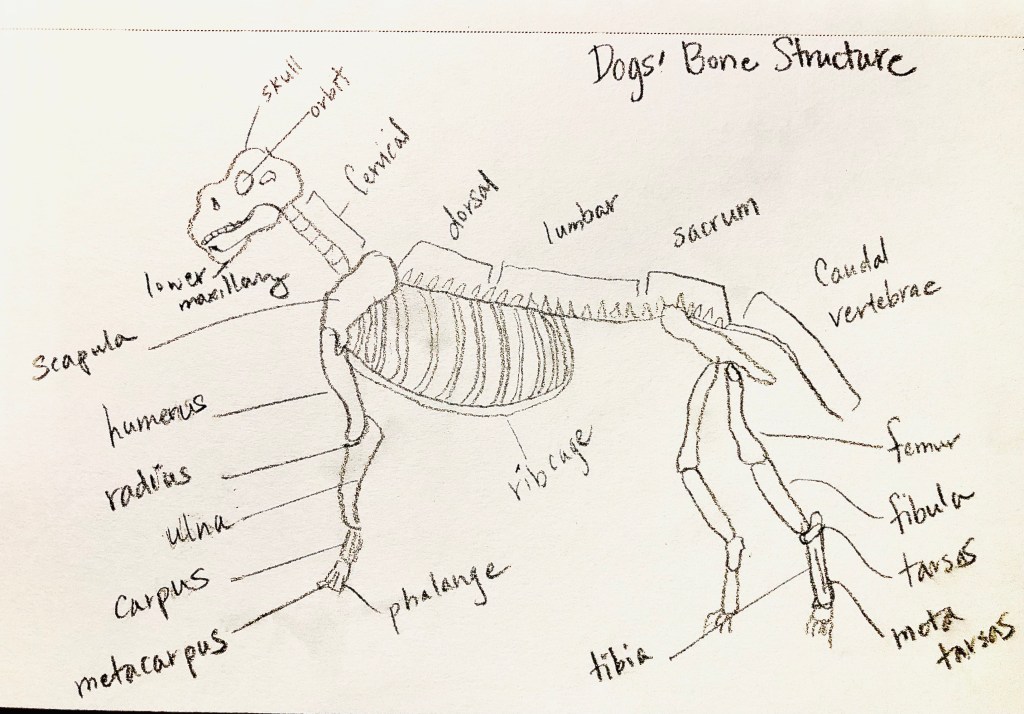 Dogs' Bone Structure
skull
orbit
Cervical
dorsal
lumbar
sacrum
Caudal
vertebrae
lower
maxillary
scapula
humerus
radius
ulna
carpus
metacarpus
phalange
rib cage
femur
fibula
tarsas
meta
tarsas
tibia